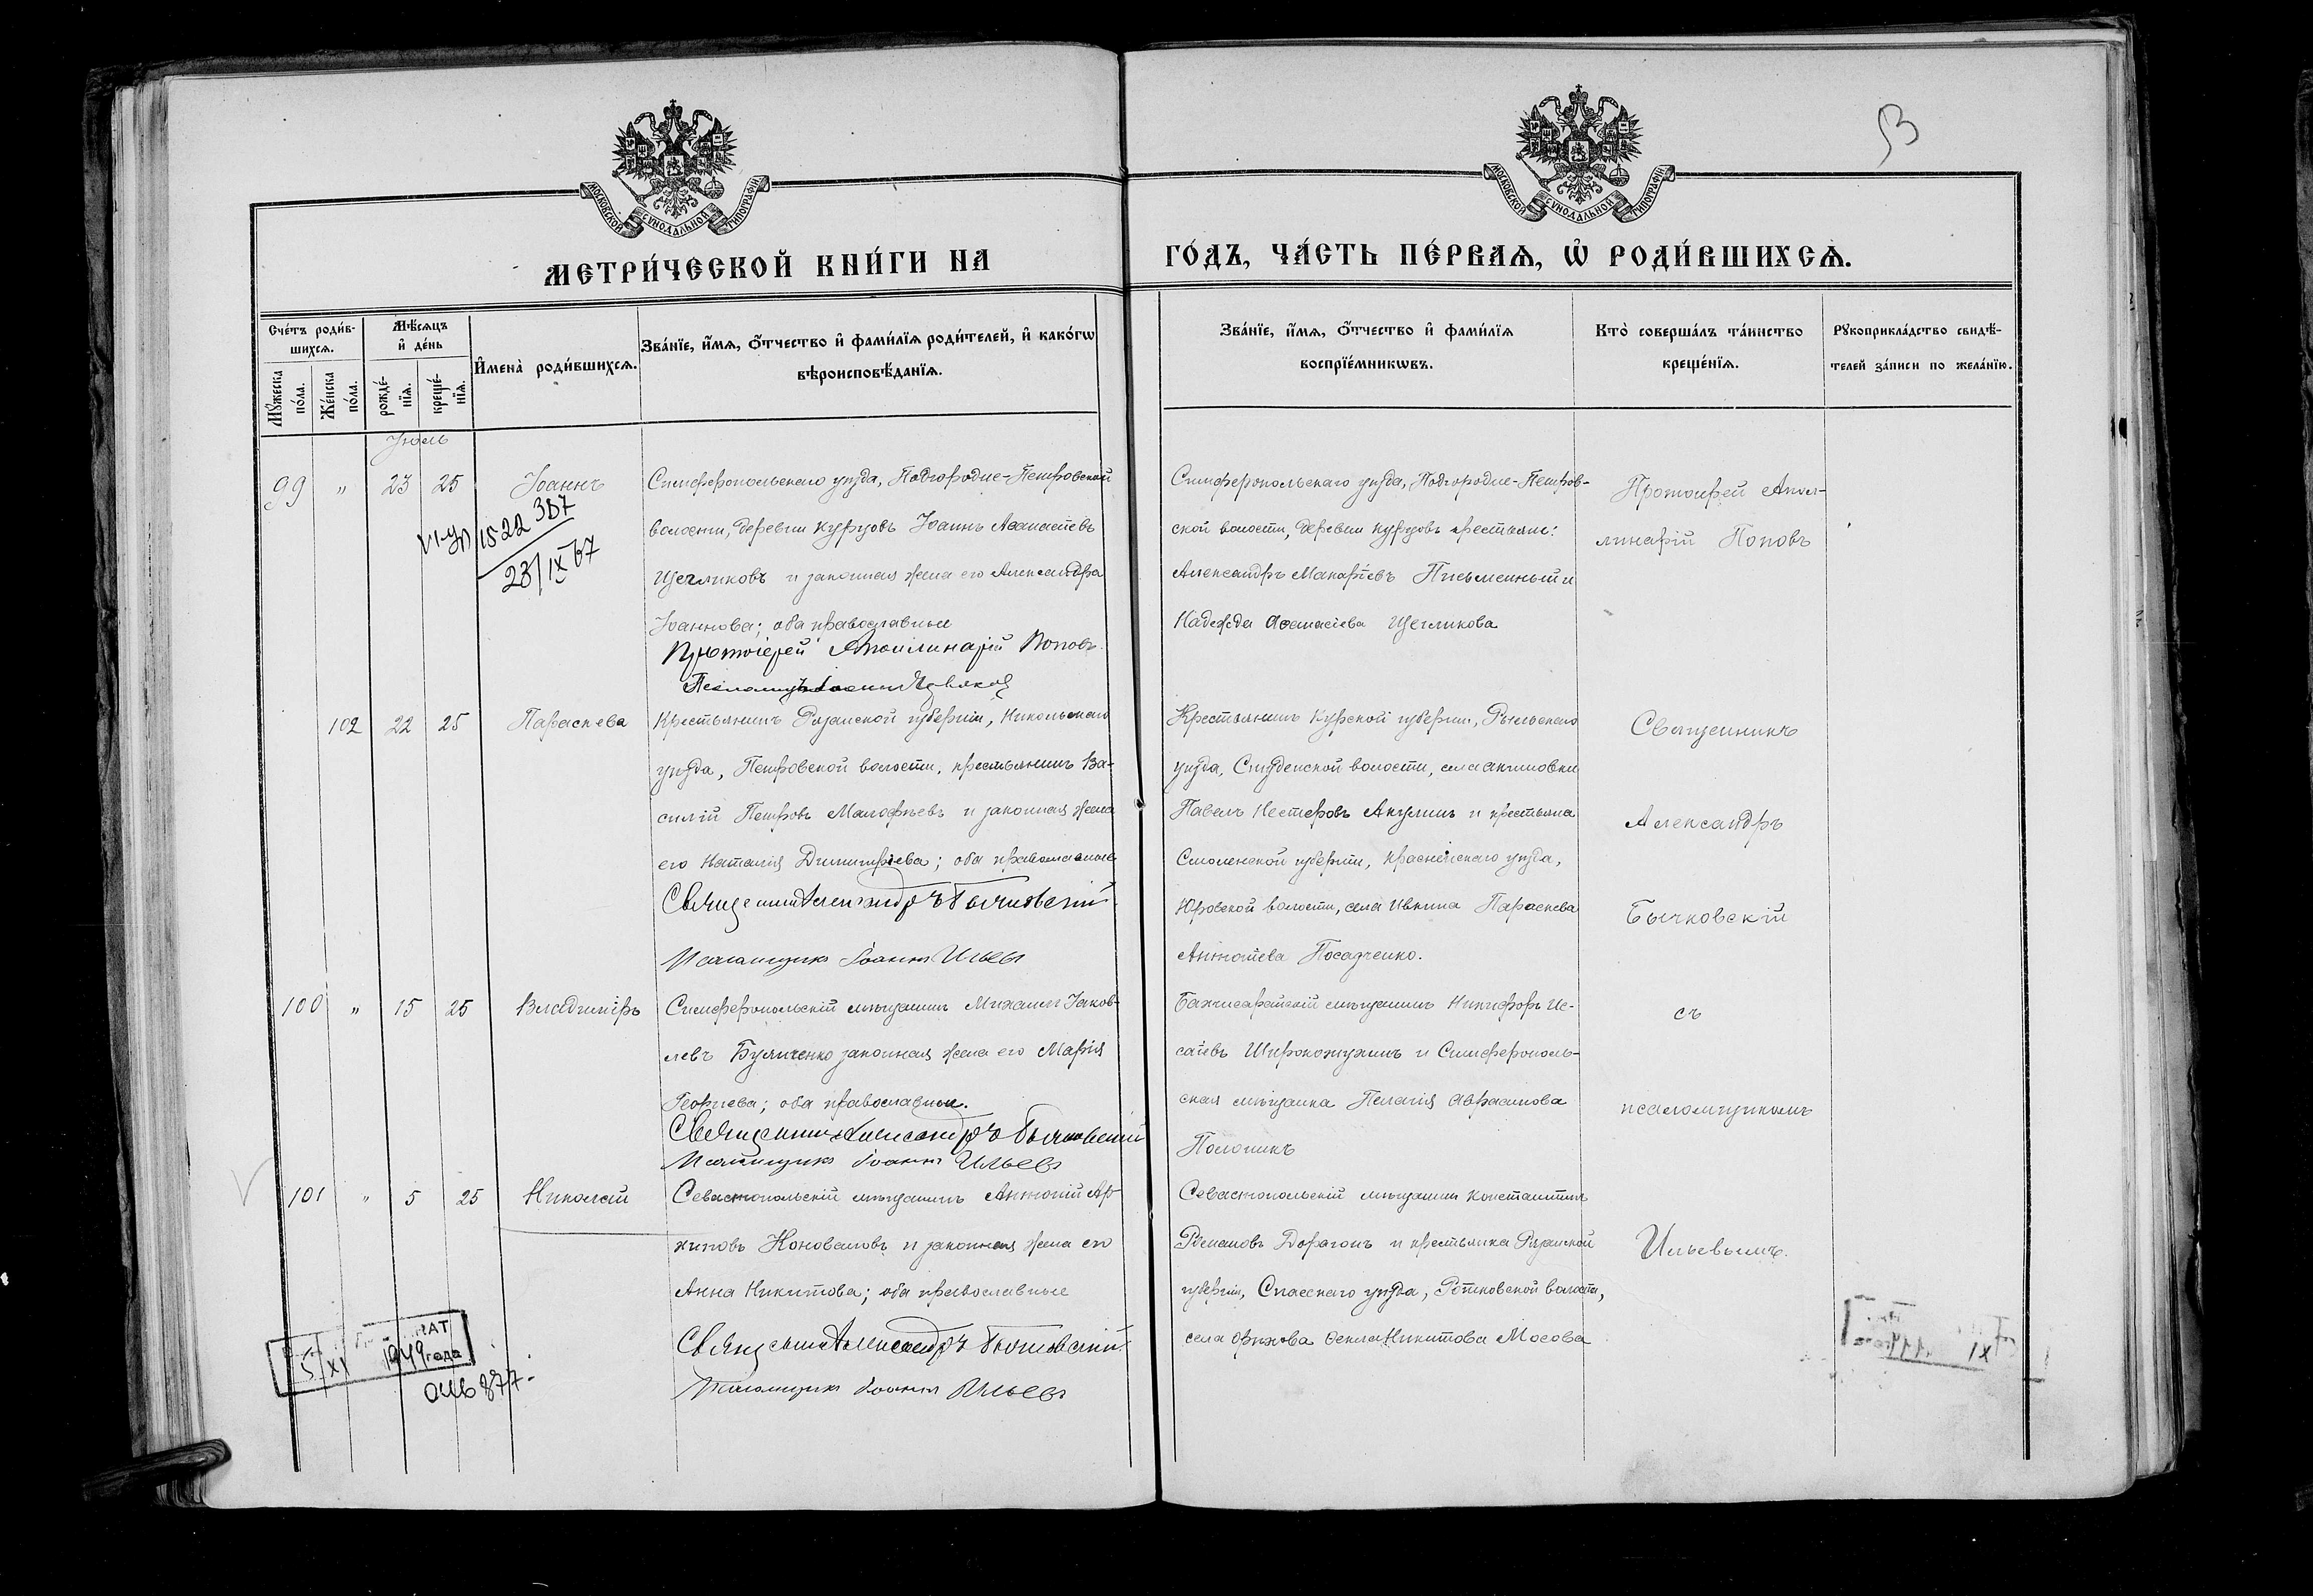 В
МОСКОВСКОЙ СѴНОДАЛЬНОЙ ТИПОГРАФІИ
МОСКОВСКОЙ СѴНОДАЛЬНОЙ ТИПОГРАФІИ
МЕТРИ́ЧЕСКОЙ КНИ́ГИ НА
ГО́ДЪ, ЧА́СТЬ ПЕ́РВАѦ, Ѽ РОДИ́ВШИХСѦ.
Сче́тъ роди́в-
шихсѧ.
Мꙋ́жеска по́ла.
Же́нска по́ла.
Мѣ́сѧцъ
и҆ де́нь
рожде́-нїѧ.
креще́-нїѧ.
И҆мена̀ роди́вшихсѧ.
Зва́нїе, и҆́мѧ, ѻ҆́тчество и҆ фами́лїѧ роди́телей, и҆ како́гѡ
вѣроисповѣ́данїѧ.
Зва́нїе, и҆́мѧ, ѻ҆́тчество и҆ фами́лїѧ
воспрїе́мникѡвъ.
Кто̀ соверша́лъ та́инство
креще́нїѧ.
Рꙋкоприкла́дство свидѣ́-
телей за́писи по жела́нїю.
Іюль
99 " 23 25 Іоаннъ
Симферопольскаго уѣзда, Подгородне-Петровской
волости, деревни Курцовъ Іоаннъ Аѳанасіевъ
Щегликовъ и законная жена его Александра
Іоаннова; оба православные
Протоіерей Аполлинарій Поповъ
Симферопольскаго уѣзда, Подгородне-Петров-
ской волости, деревни Курцовъ крестьяне:
Александръ Макаріевъ Письменный и
Надежда Аѳанасіева Щегликова
Протоиерей Апол-
линарій Поповъ
1522 387
23/IX 67
102 22 25 Параскева
Крестьянинъ Рязанской губерніи, Никольскаго
уѣзда, Петровской волости, крестьянинъ Ва-
силій Петровъ Малофѣевъ и законная жена
его Наталія Димитріева; оба православные
Священникъ Александръ Бычковскій
Псаломщикъ Іоаннъ Ильевъ
Крестьянинъ Курской губерніи, Рыльскаго
уѣзда, Студенской волости, села Акимовки
Павелъ Нестеровъ Акулинъ и крестьянка
Смоленской губерніи, Краснинскаго уѣзда,
Юровской волости, села Ивкина Параскева
Антоніева Посадченко.
Священникъ
Александръ
Бычковскій
съ
псаломщикомъ
Ильевымъ.
100 " 15 25 Владиміръ
Симферопольскій мѣщанинъ Михаилъ Іаков-
левъ Буличенко законная жена его Марія
Георгіева; оба православные.
Священникъ Александръ Бычковскій
Псаломщикъ Іоаннъ Ильевъ
Бахчисарайскій мѣщанинъ Никифоръ Ис-
саіевъ Широкожухинъ и Симферополь-
ская мѣщанка Пелагія Авраамова
Полоникъ
101 " 5 25 Николай
Севастопольскій мѣщанинъ Антоній Ар-
хиповъ Коноваловъ и законная жена его
Анна Никитова; оба православные
Священникъ Александръ Бычковскій
Псаломщикъ Іоаннъ Ильевъ
Севастопольскій мѣщанинъ Константинъ
Романовъ Дорагонъ и крестьянка Рязанской
губерніи, Спасскаго уѣзда, волости,
села Ѳекла Никитова Мосова
5 XI 1949 года
046877